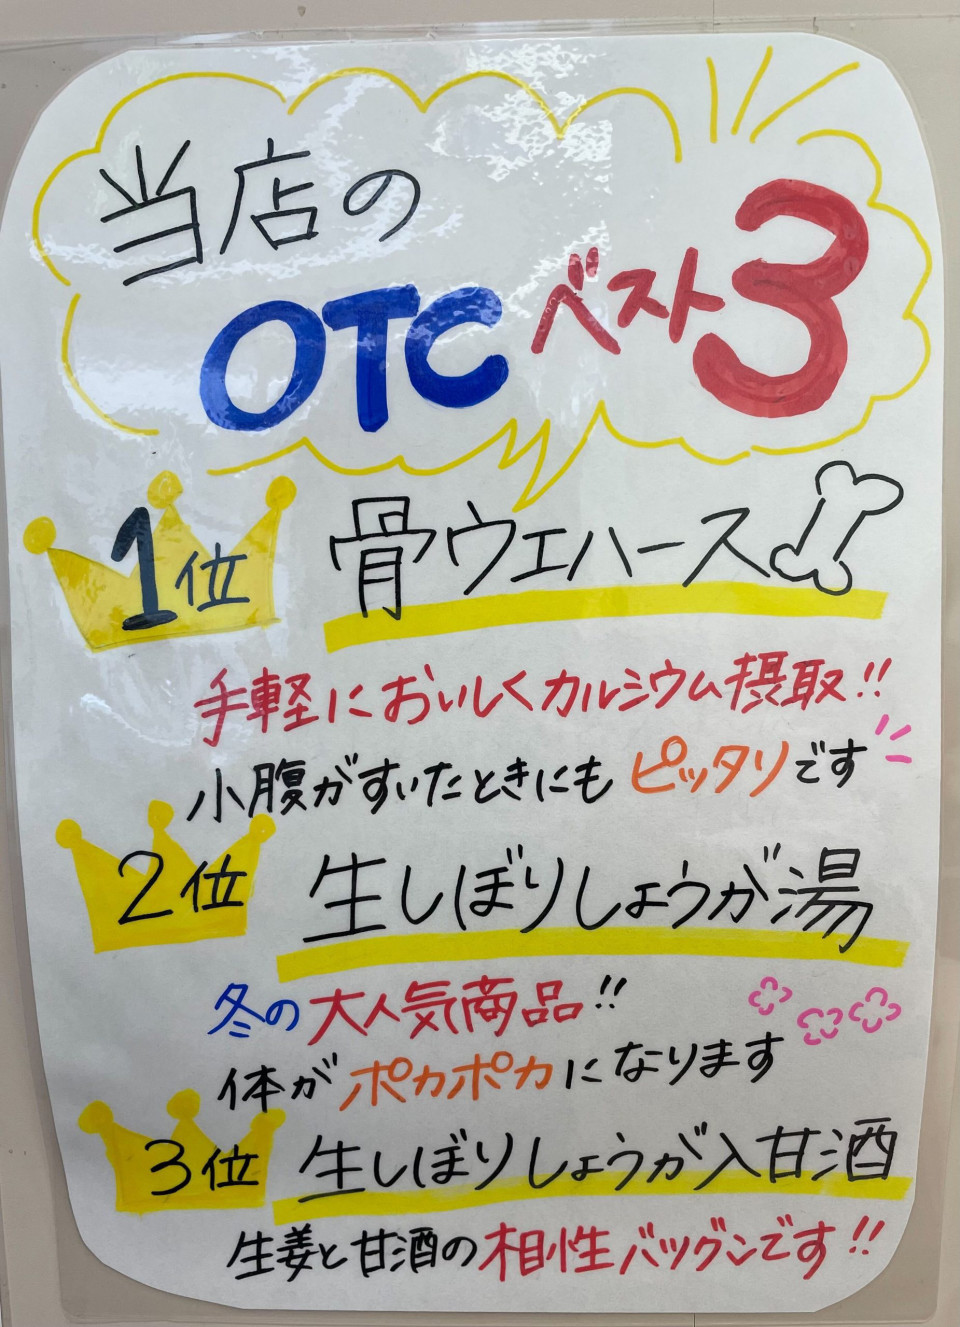 当店の
OTCベスト3
1位 骨ウエハース
手軽においしくカルシウム摂取!!
小腹がすいたときにもピッタリです
2位 生しぼりしょうが湯
冬の大人気商品!!
体がポカポカになります
3位 生しぼりしょうが入甘酒
生姜と甘酒の相性バツグンです!!